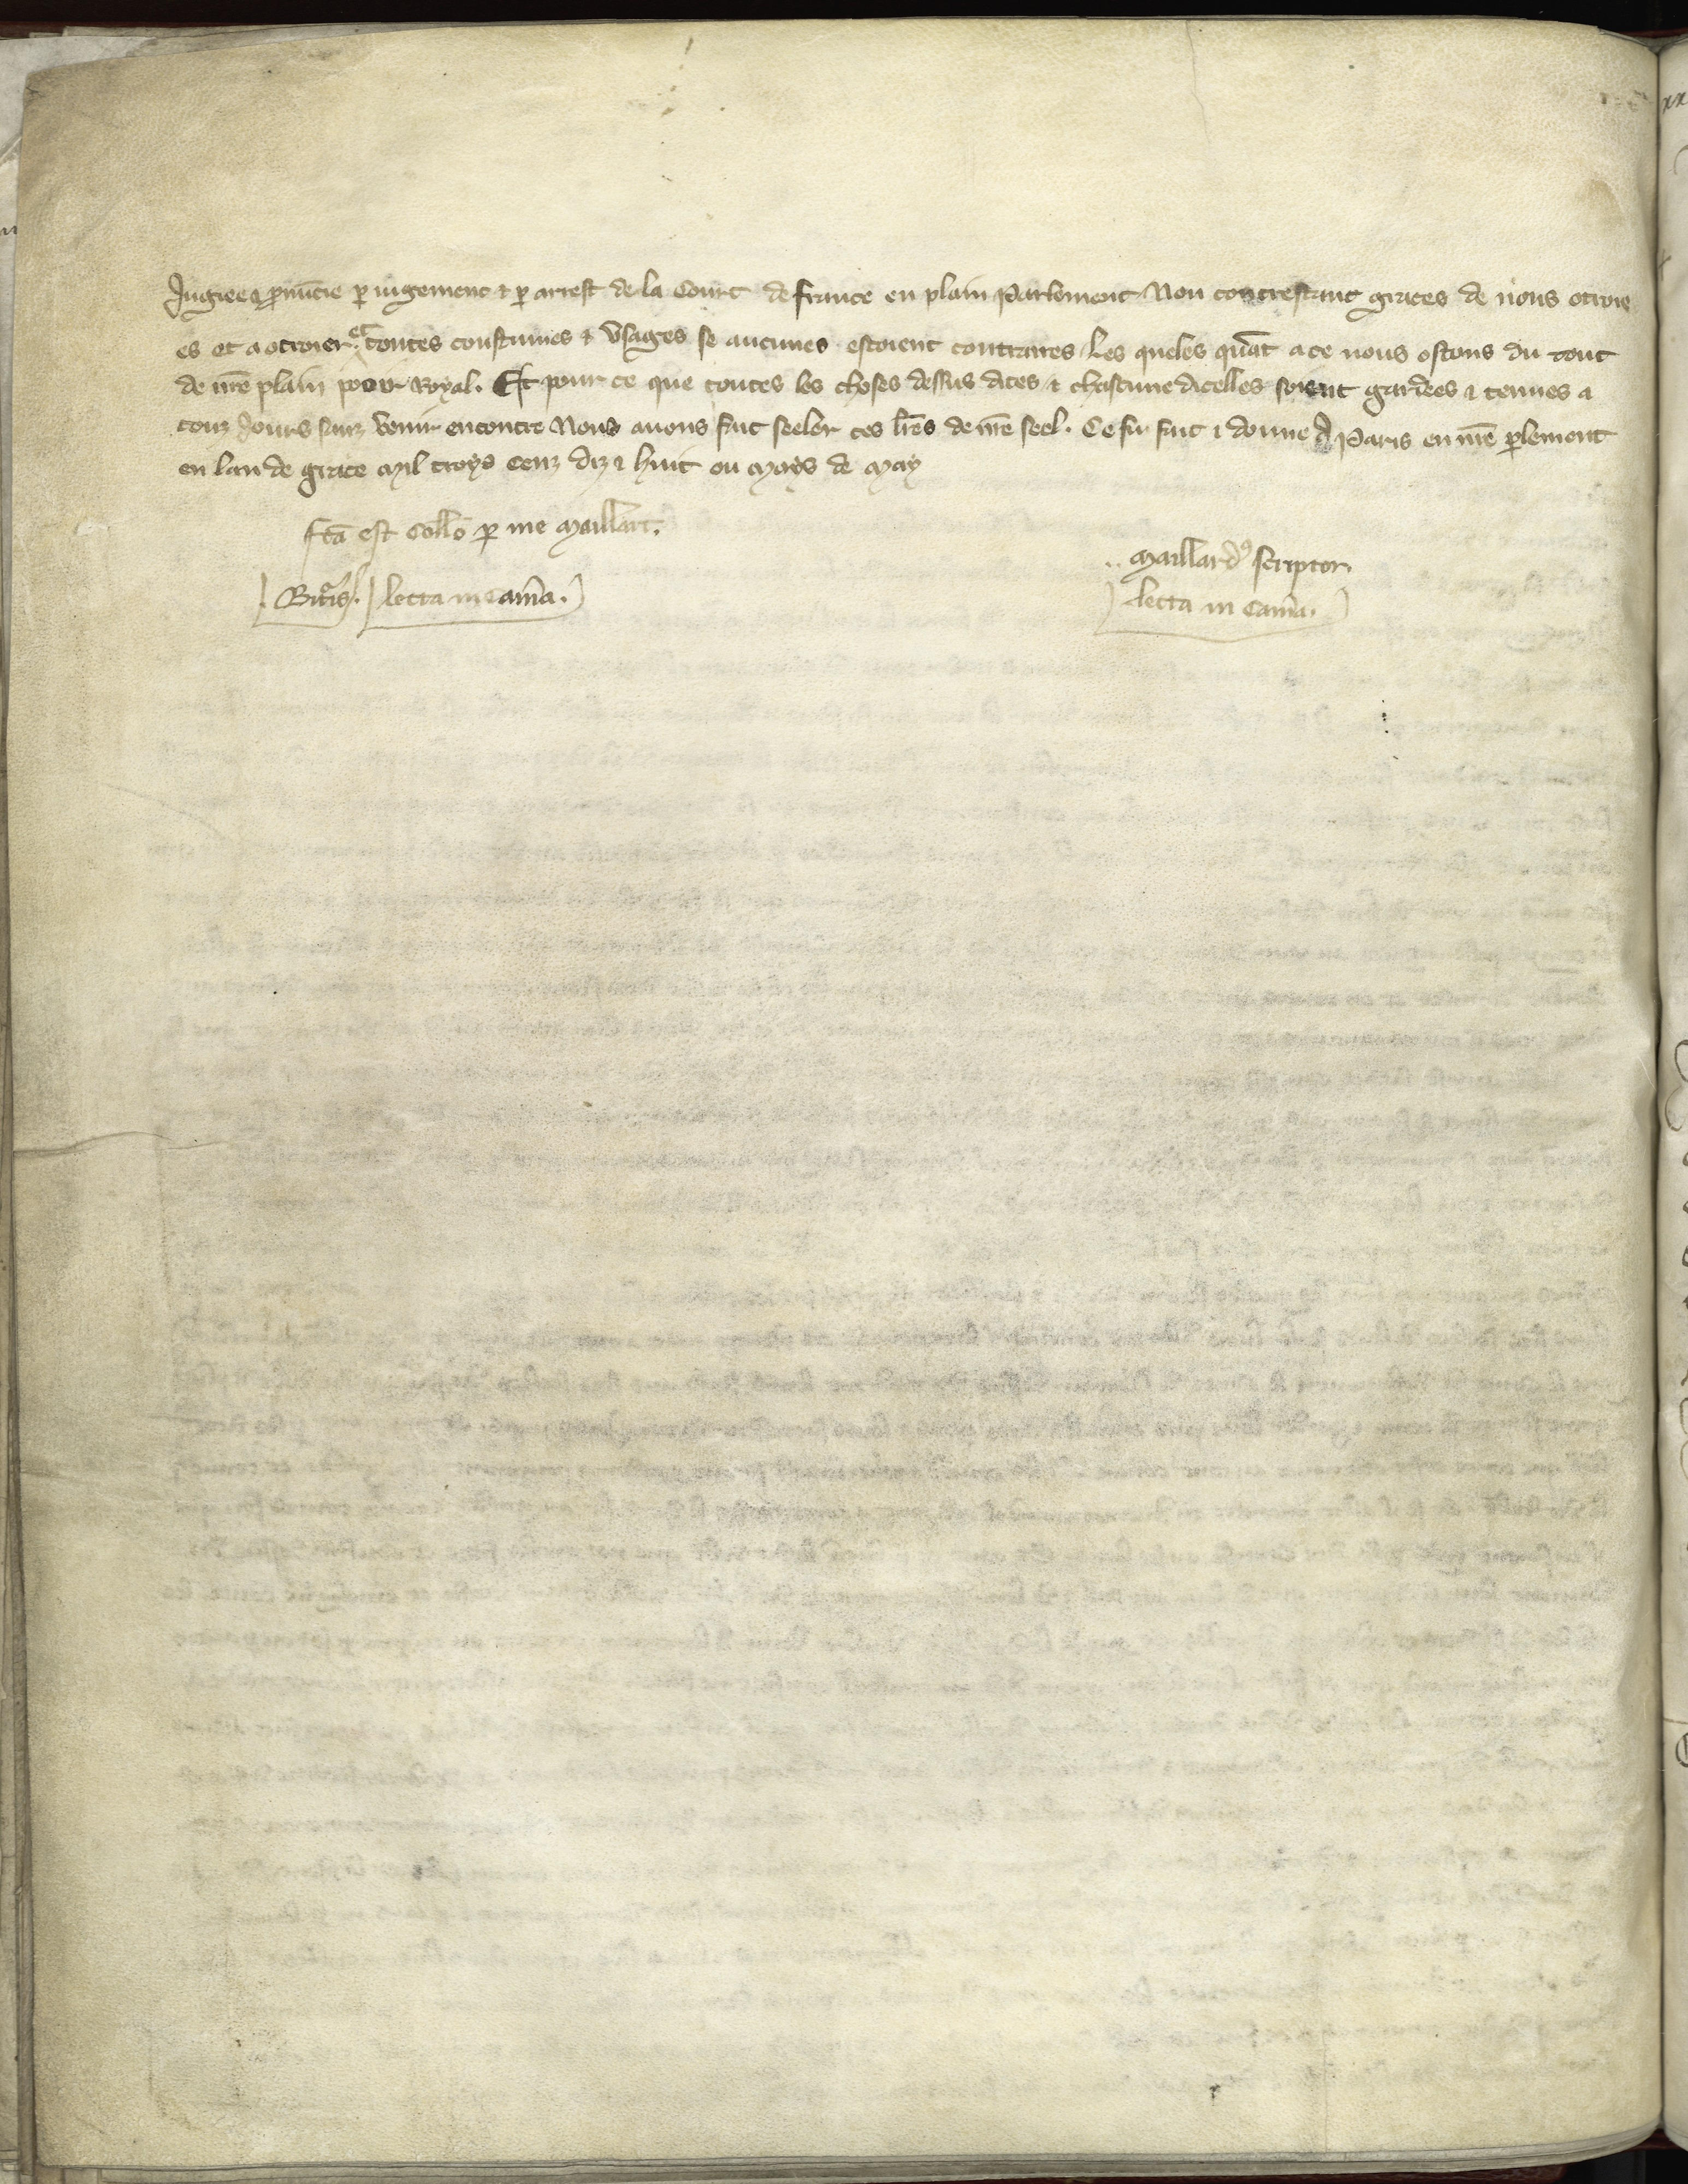 Jugiee & ꝓnūcie ꝑ iugement & ꝑ arrest de la Court de france en plain Parlement Non contrestant graces de nous otroie
es et a otroier. et toutes coustumes & vsages se aucunes estoient contraires Les queles quāt a ce nous ostons du tout
de nr̄e plain pooir Royal. Et pour ce que toutes les choses dessus dites & chascune dicelles soient gardees & tenues a
touz Jours sanz venir encontre Nous auons fait seeler ces lr̄es de nr̄e seel. Ce fu fait & donne A Paris en nr̄e ꝑlement
en lan de grace Mil troys cenz diz & huit ou Moys de May
fcā est Collō ꝑ me Maillart.
.. Maillardꝰ scriptor.
. Bitᵃis. lecta in Cam̄a.
lecta in Cam̄a.